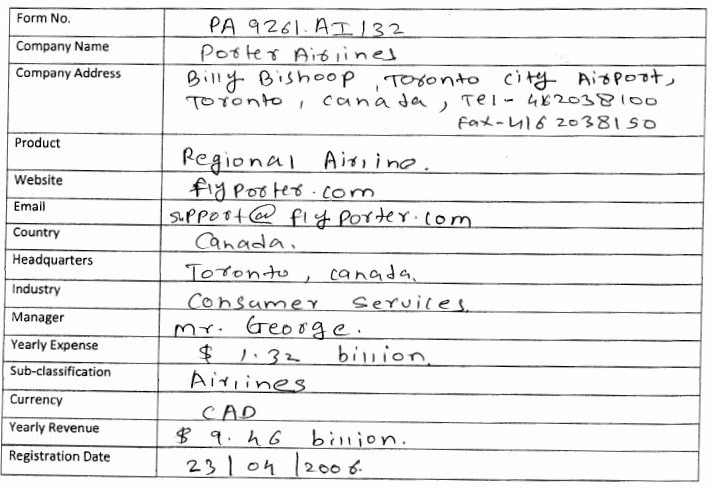 Form No. PA 9261.AI 132
Company Name Porter Airlines
Company Address Billy Bishoop, Toronto city Airport,
Toronto, canada, Tel - 4162038100
Fax - 416 2038150
Product Regional Airline.
Website flyporter.com
Email support@flyporter.com
Country Canada.
Headquarters Toronto, canada.
Industry Consumer Services.
Manager mr. George.
Yearly Expense $ 1.32 billion.
Sub-classification Airlines
Currency CAD
Yearly Revenue $ 9.46 billion.
Registration Date 23/04/2006